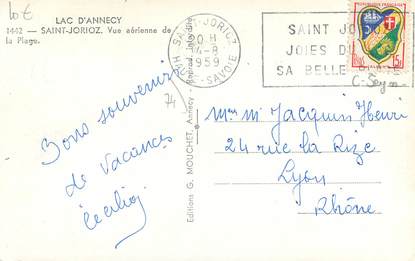 10€
LAC D'ANNECY
1442 — SAINT-JORIOZ. Vue aérienne de
la Plage.
SAINT-JORIOZ
20 H
14-8
1959
HTE-SAVOIE
SAINT JO
JOIES D
SA BELLE
15F
74
Bons souvenirs
de vacances
Cécilia
Editions G. MOUCHET, Annecy - Reprod. interdite
Mme M Jacquin Henri
24 rue la Rize
Lyon
Rhône